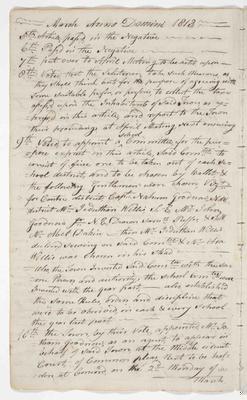 March Anno Domini 1813
5th Article passd in the Negative
6th Passd in the Negative
7th put over to April Meeting to be acted upon
8th Voted that the Selectmen take Such Measures, as
they Shall think best for the purpose of agreeing with
Some Suitable person, or persons to collect the taxes
upon the Inhabitants of Said Town as
in this article, and report to the Town
their proceedings at April Meeting Next ensuing
School
9th Voted to appoint a Committee for the purpose
expressed in this article, Said Comtee to
consist of Five one to be taken out of each School
district, and to be chosen by Ballot &
the following Gentlemen were chosen Viz
for Centre district Capt Nahum Goodnow North
district Mr Jedutham Willis S. E. Mr John
Goodnow for N. E. Deacn Saml &
Mr Abel Dakin — then Mr Jedutham Willis
declined Serving on Said Comtee & Mr
Willis was chosen in his Stead
Also the Town Invested Said Comtee with the Same
Power and authority, the School Comtee were
Invested with the year past — also established
the Same Rules, orders and discipline that
were to be observed in each & every School
the year last past
10th The Town by their Vote, appointed Mr
Goodnow, as an agent to appear in
behalf of Said Town at the Middle Circuit
Court of Common pleas, next to be holden
at Concord, on the 2d Monday of
March